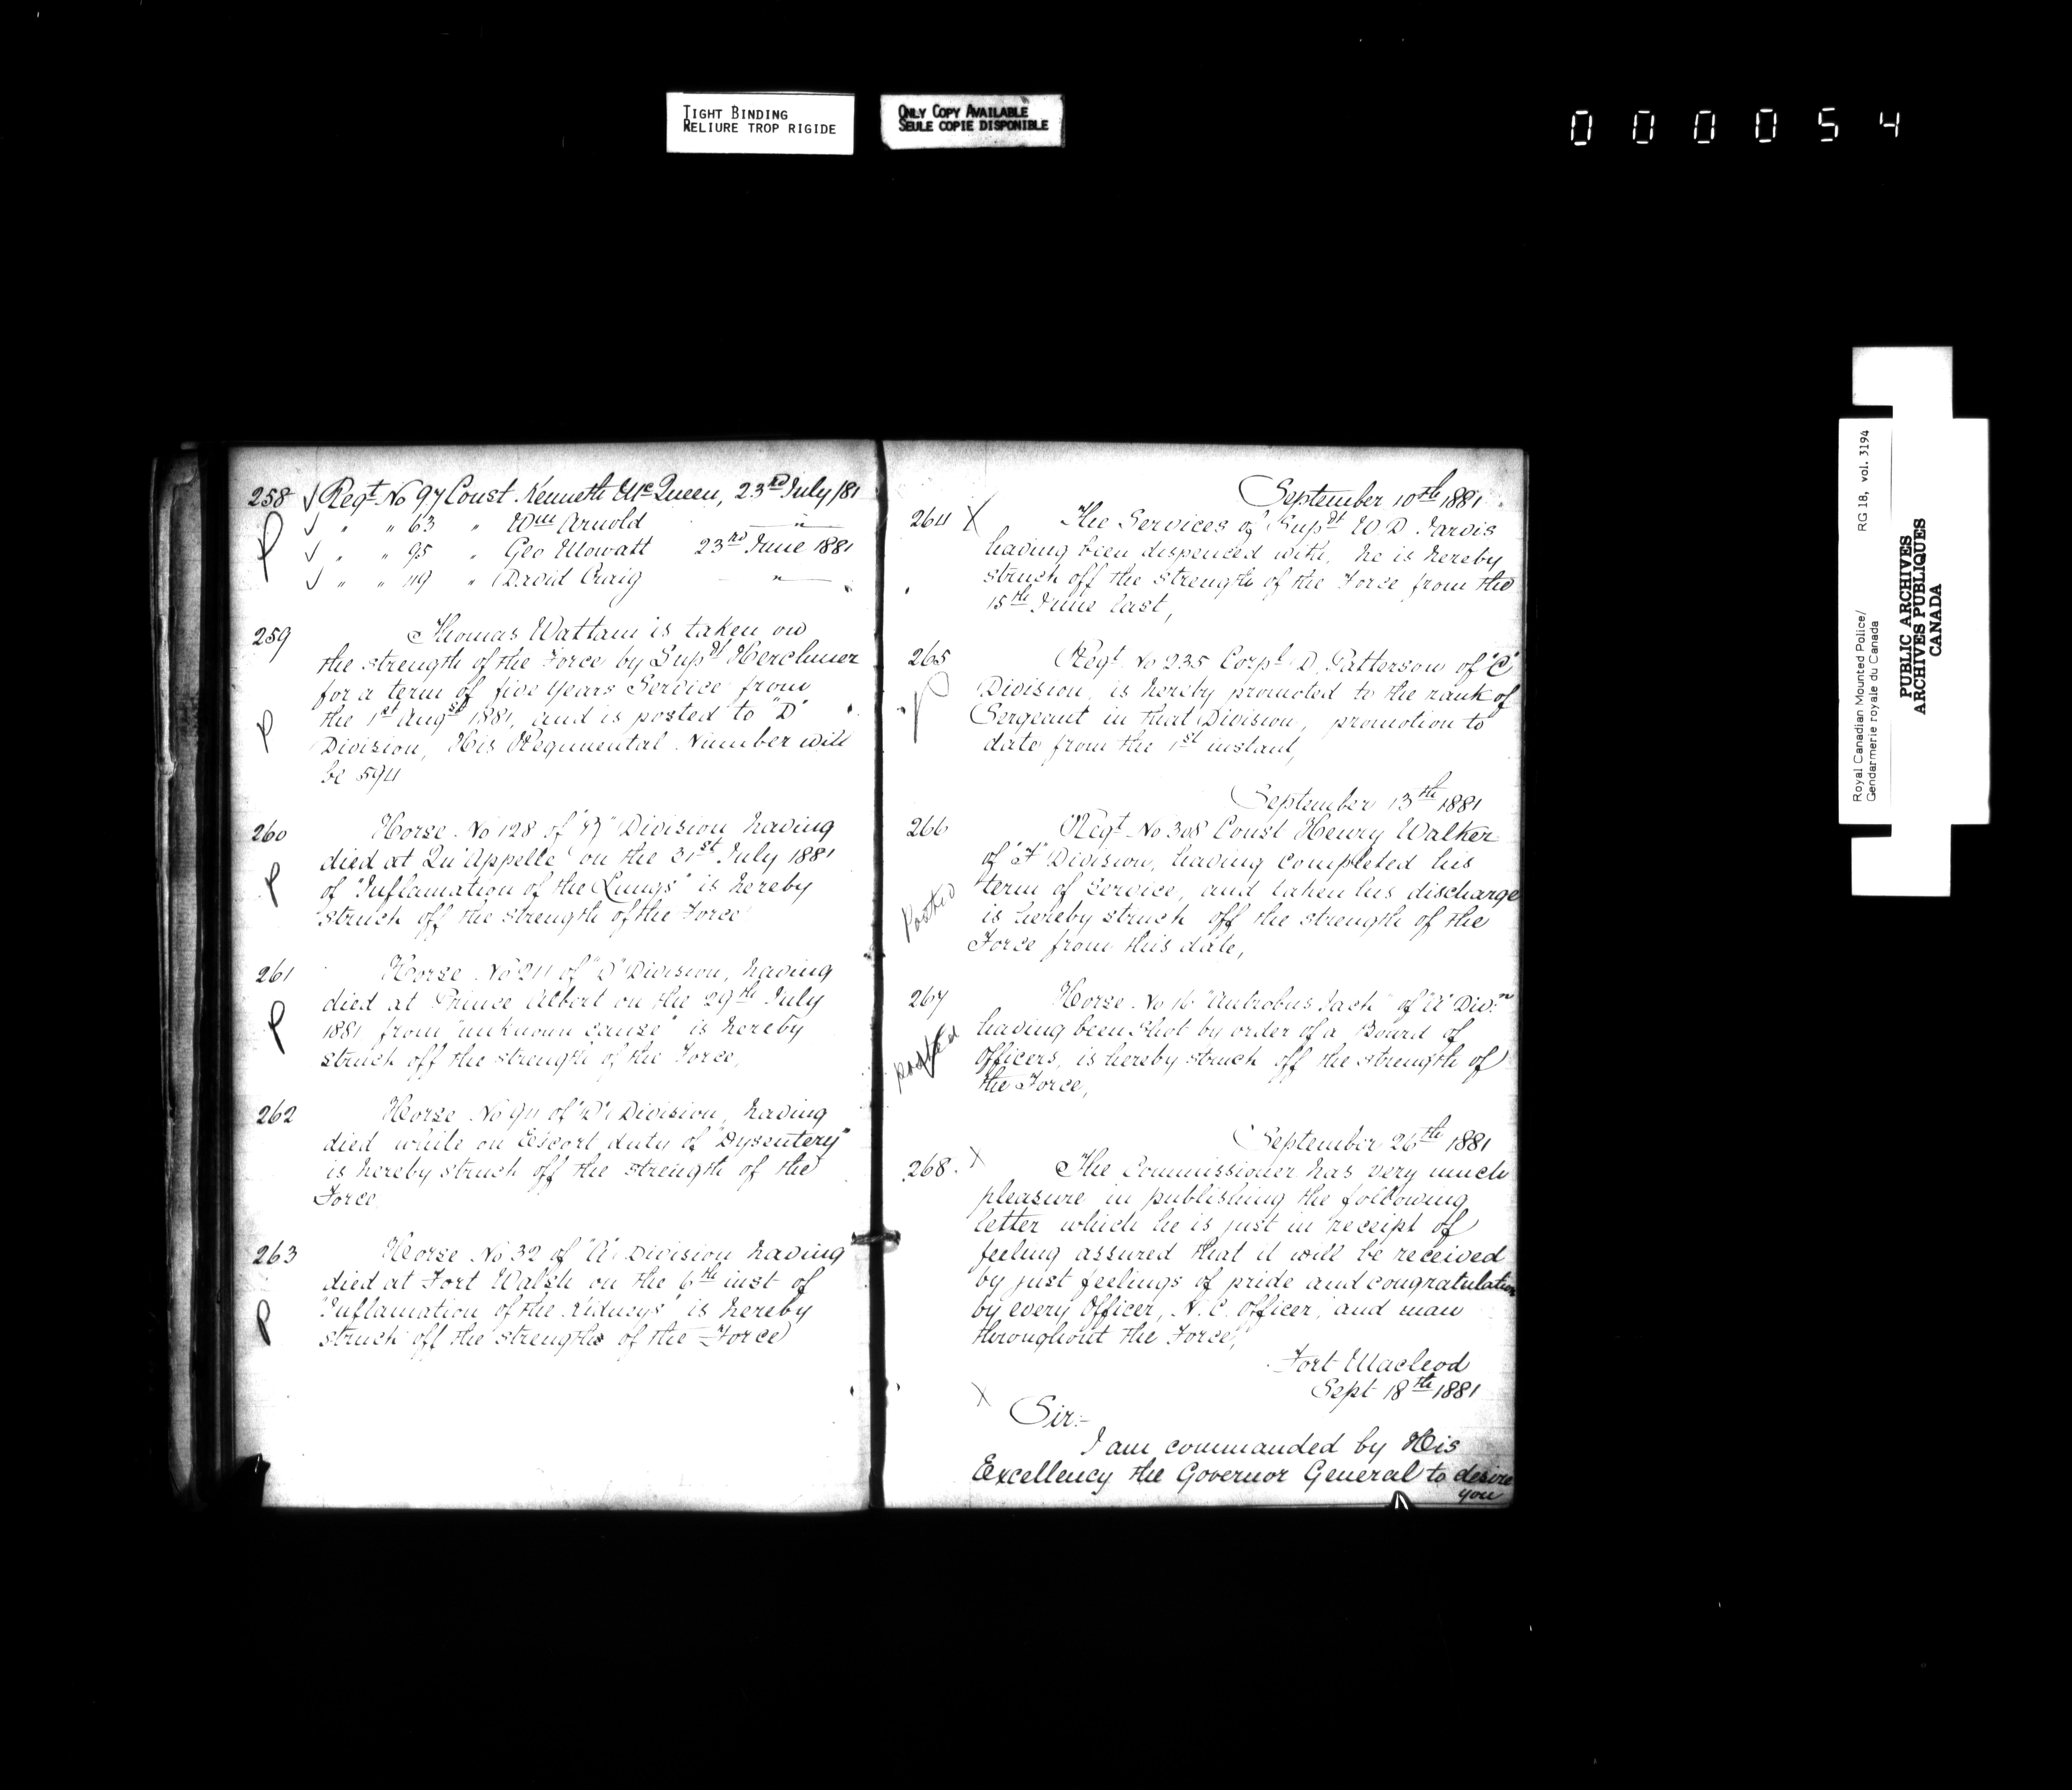 TIGHT BINDING
RELIURE TROP RIGIDE
ONLY COPY AVAILABLE
SEULE COPIE DISPONIBLE
000054
258 Regt No 97 Const. Kenneth McQueen, 23rd July/81
" " 63 " Wm Arnold "
" " 95 " Geo Mowatt 23rd June 1881
" " 119 " David Craig "
259 Thomas Wattam is taken on
the strength of the Force by Supdt Herchmer
for a term of five years Service from
the 1st Augst 1881, and is posted to "D"
Division, His Regimental Number will
be 594
260 Horse No 128 of "B" Division having
P died at Qu'Appelle on the 31st July 1881
of "Inflamation of the Lungs" is hereby
struck off the strength of the Force
261 Horse No 211 of "D" Division, having
died at Prince Albert on the 29th July
1881 from "unknown cause" is hereby
struck off the strength of the Force,
262 Horse No 94 of "D" Division, having
died while on Escort duty of "Dysentery"
is hereby struck off the strength of the
Force
263 Horse No 32 of "A" Division having
died at Fort Walsh on the 6th inst of
"Inflamation of the Kidneys" is hereby
struck off the strength of the Force
September 10th 1881
264 X The Services of Supdt W.D. Jarvis
having been dispenced with, he is hereby
struck off the strength of the Force from the
15th June last,
265 Regt No 235 Corpl D. Patterson of "C"
Division, is hereby promoted to the rank of
Sergeant in that Division, promotion to
date from the 1st instant,
September 13th 1881
266 Regt No 308 Const Henry Walker
of "F" Division, having completed his
term of Service, and taken his discharge
Posted
is hereby struck off the strength of the
Force from this date,
267 Horse No 16 "Antrobus Jack" of "A" Divn
having been shot by order of a Board of
posted
Officers, is hereby struck off the strength of
the Force,
September 26th 1881
268. X The Commissioner has very much
pleasure in publishing the following
letter which he is just in receipt of
feeling assured that it will be received
by just feelings of pride and congratulation
by every Officer, N.C. Officer, and man
throughout the Force,
Fort Macleod
Sept 18th 1881
X Sir:-
I am commanded by His
Excellency the Governor General to desire
you
Royal Canadian Mounted Police/
Gendarmerie royale du Canada
RG 18, vol. 3194
PUBLIC ARCHIVES
ARCHIVES PUBLIQUES
CANADA